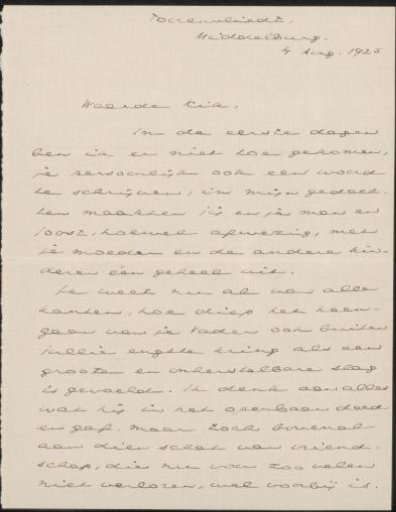 Torenvliedt.
Middelburg.
4 Aug. 1925
Waarde Kik,
In de eerste dagen
ben ik er niet toe gekomen,
je persoonlijk ook een woord
te schrijven; in mijn gedach-
ten maakten jij en je man en
Joost, hoewel afwezig, met
je moeder en de andere kin-
deren één geheel uit.
Je weet nu al van alle
kanten, hoe diep het heen-
gaan van je Vader ook buiten
jullie engste kring als een
groote en onherstelbare slag
is gevoeld. Ik denk aan alles
wat hij in het openbaar deed
en gaf, maar toch bovenal
aan dien schat van vriend-
schap, die nu voor zoo velen
niet verloren, wel voorbij is.